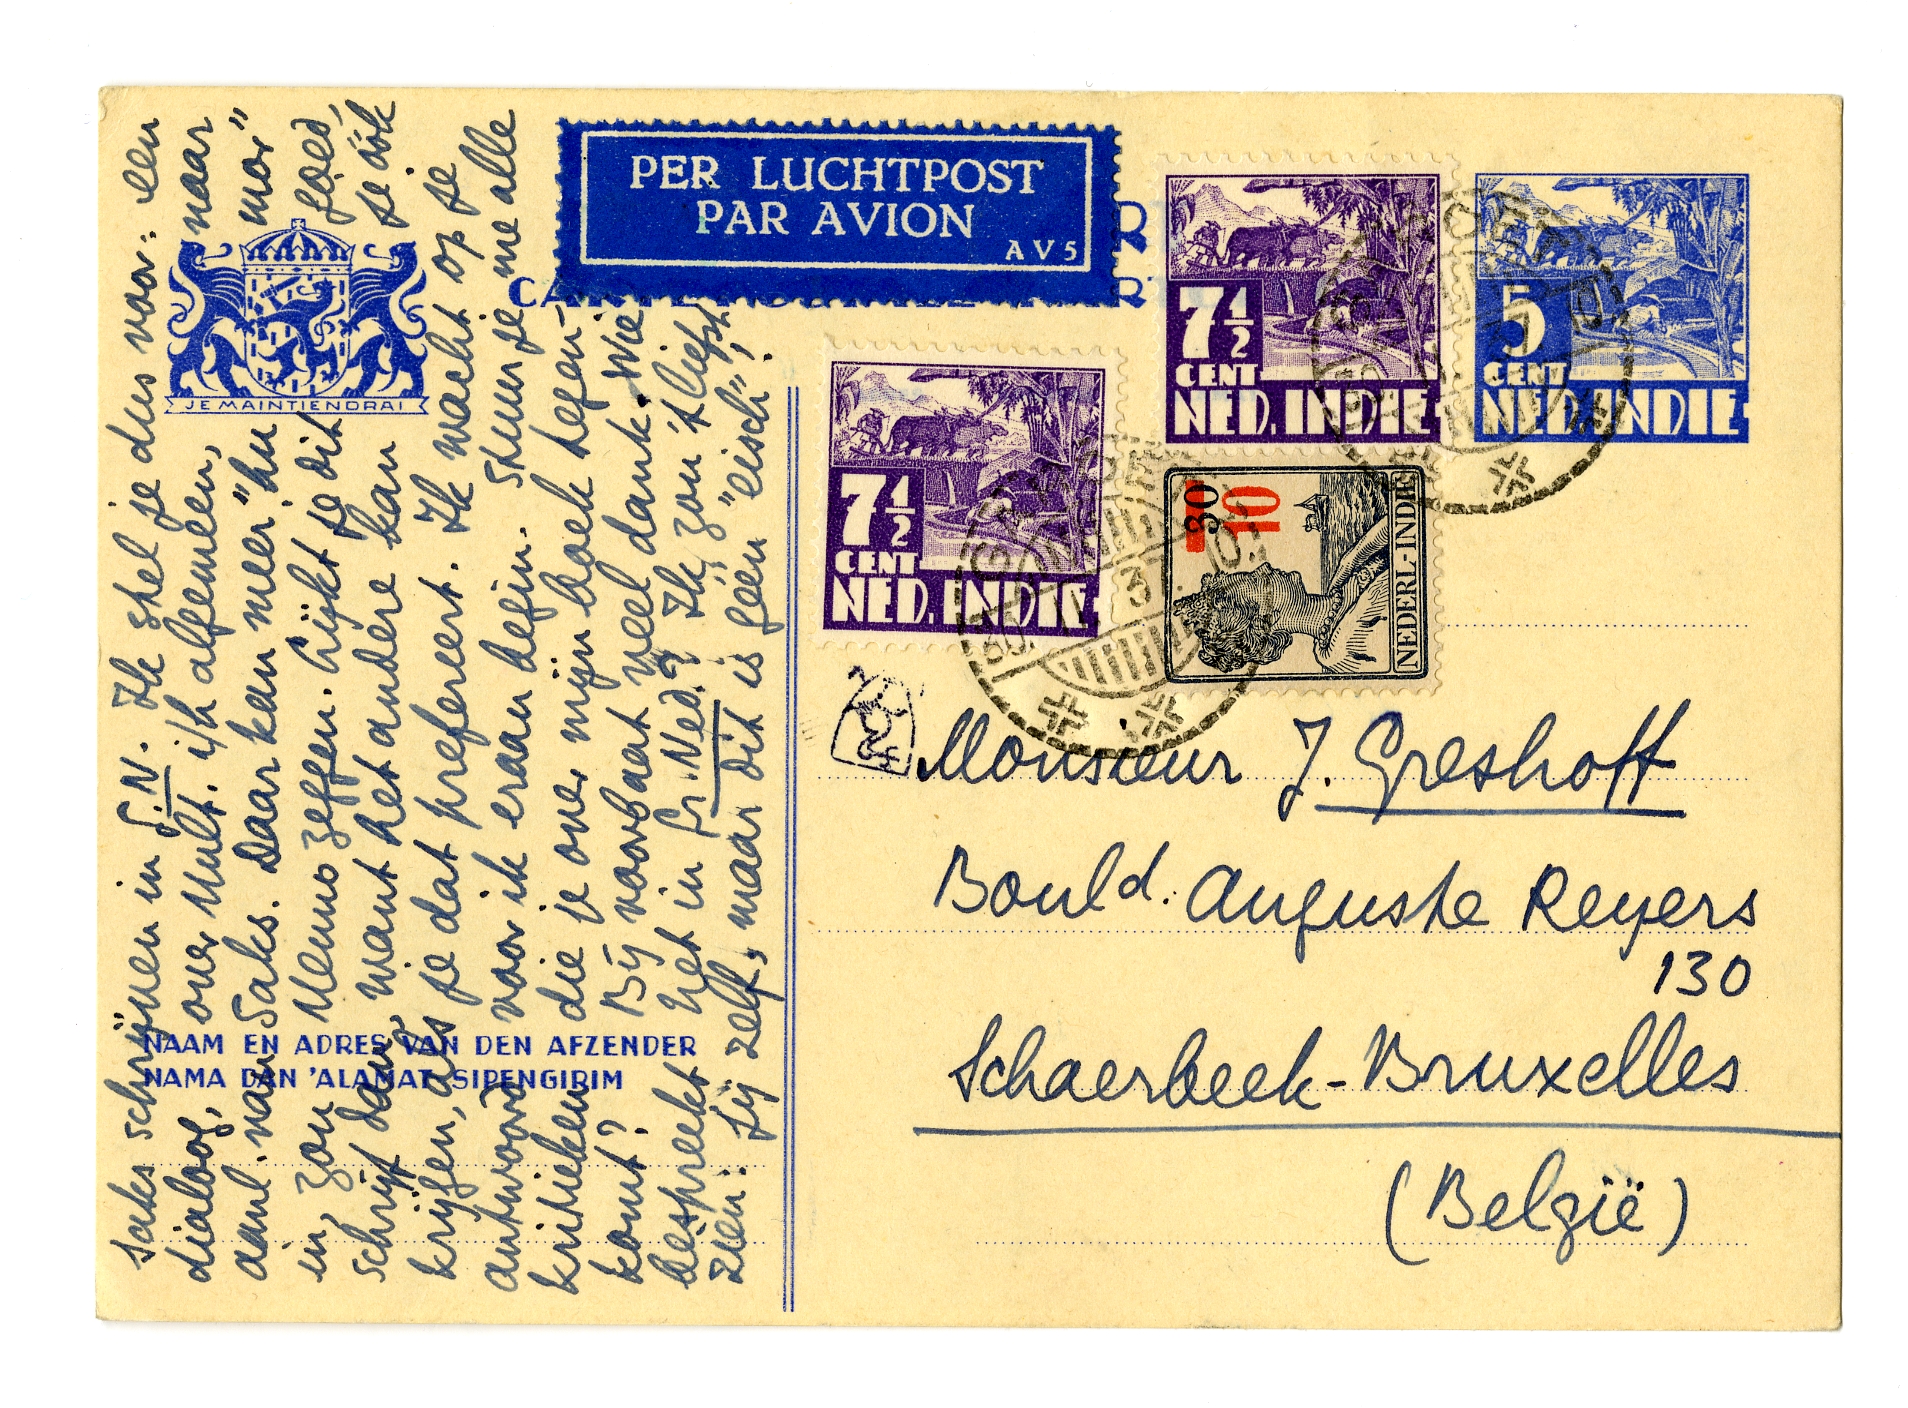 PER LUCHTPOST
PAR AVION
AV5
JE MAINTIENDRAI
7½
CENT
NED. INDIE
5
CENT
NED. INDIE
7½
CENT
NED. INDIE
30
10
NEDERL-INDIE
Monsieur J. Greshoff
Bould. Auguste Reyers
130
Schaerbeek-Bruxelles
(België)
NAAM EN ADRES VAN DEN AFZENDER
NAMA DAN 'ALAMAT SIPENGIRIM
Saks schrijven in G.N. Ik stel je dus voor: een
dialoog, over Mult. i/h algemeen, naar
aanl. van Saks. Daar kan meer "hu mor"
in, zou Menno zeggen. Lijkt je dit goed,
schrijf dan, want het andere kan je óók
krijgen, als je dat prefereert. Ik wacht op je
antwoord voor ik eraan begin. Stuur je me alle
kritieken die je over mijn boek tegen-
komt? Bij voorbaat veel dank. Wie
bespreekt het in Gr. Ned.? Ik zou 't liefst
zien: jij zelf, maar dit is geen "eisch",